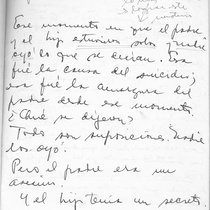 Ese momento en que el padre
y el hijo estuvieron solos, nadie
oyó lo que se decían. Esa
fué la causa del suicidio;
esa fué la amargura del
padre desde ese momento.
¿Qué se dijeron?
Todo son suposiciones. Nadie
los oyó.
Pero el padre era un
asesino.
Y el hijo tenía un secreto.